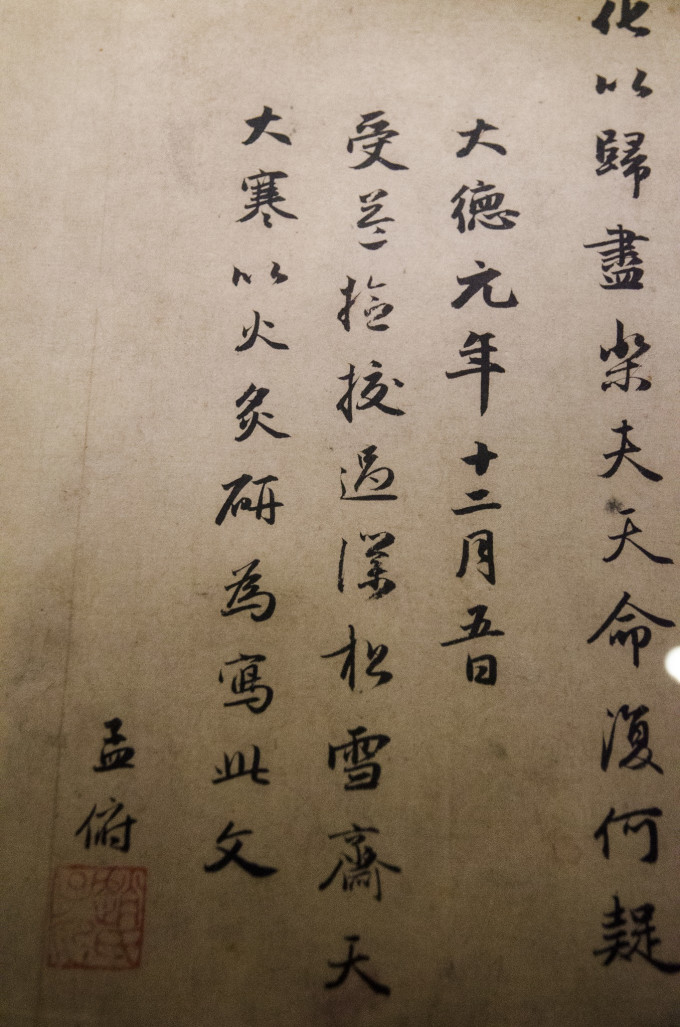 化以歸盡樂夫天命復何疑
大德元年十二月五日
受益撿挍過僕松雪齋天
大寒以火炙研為寫此文
孟俯
趙氏子昂